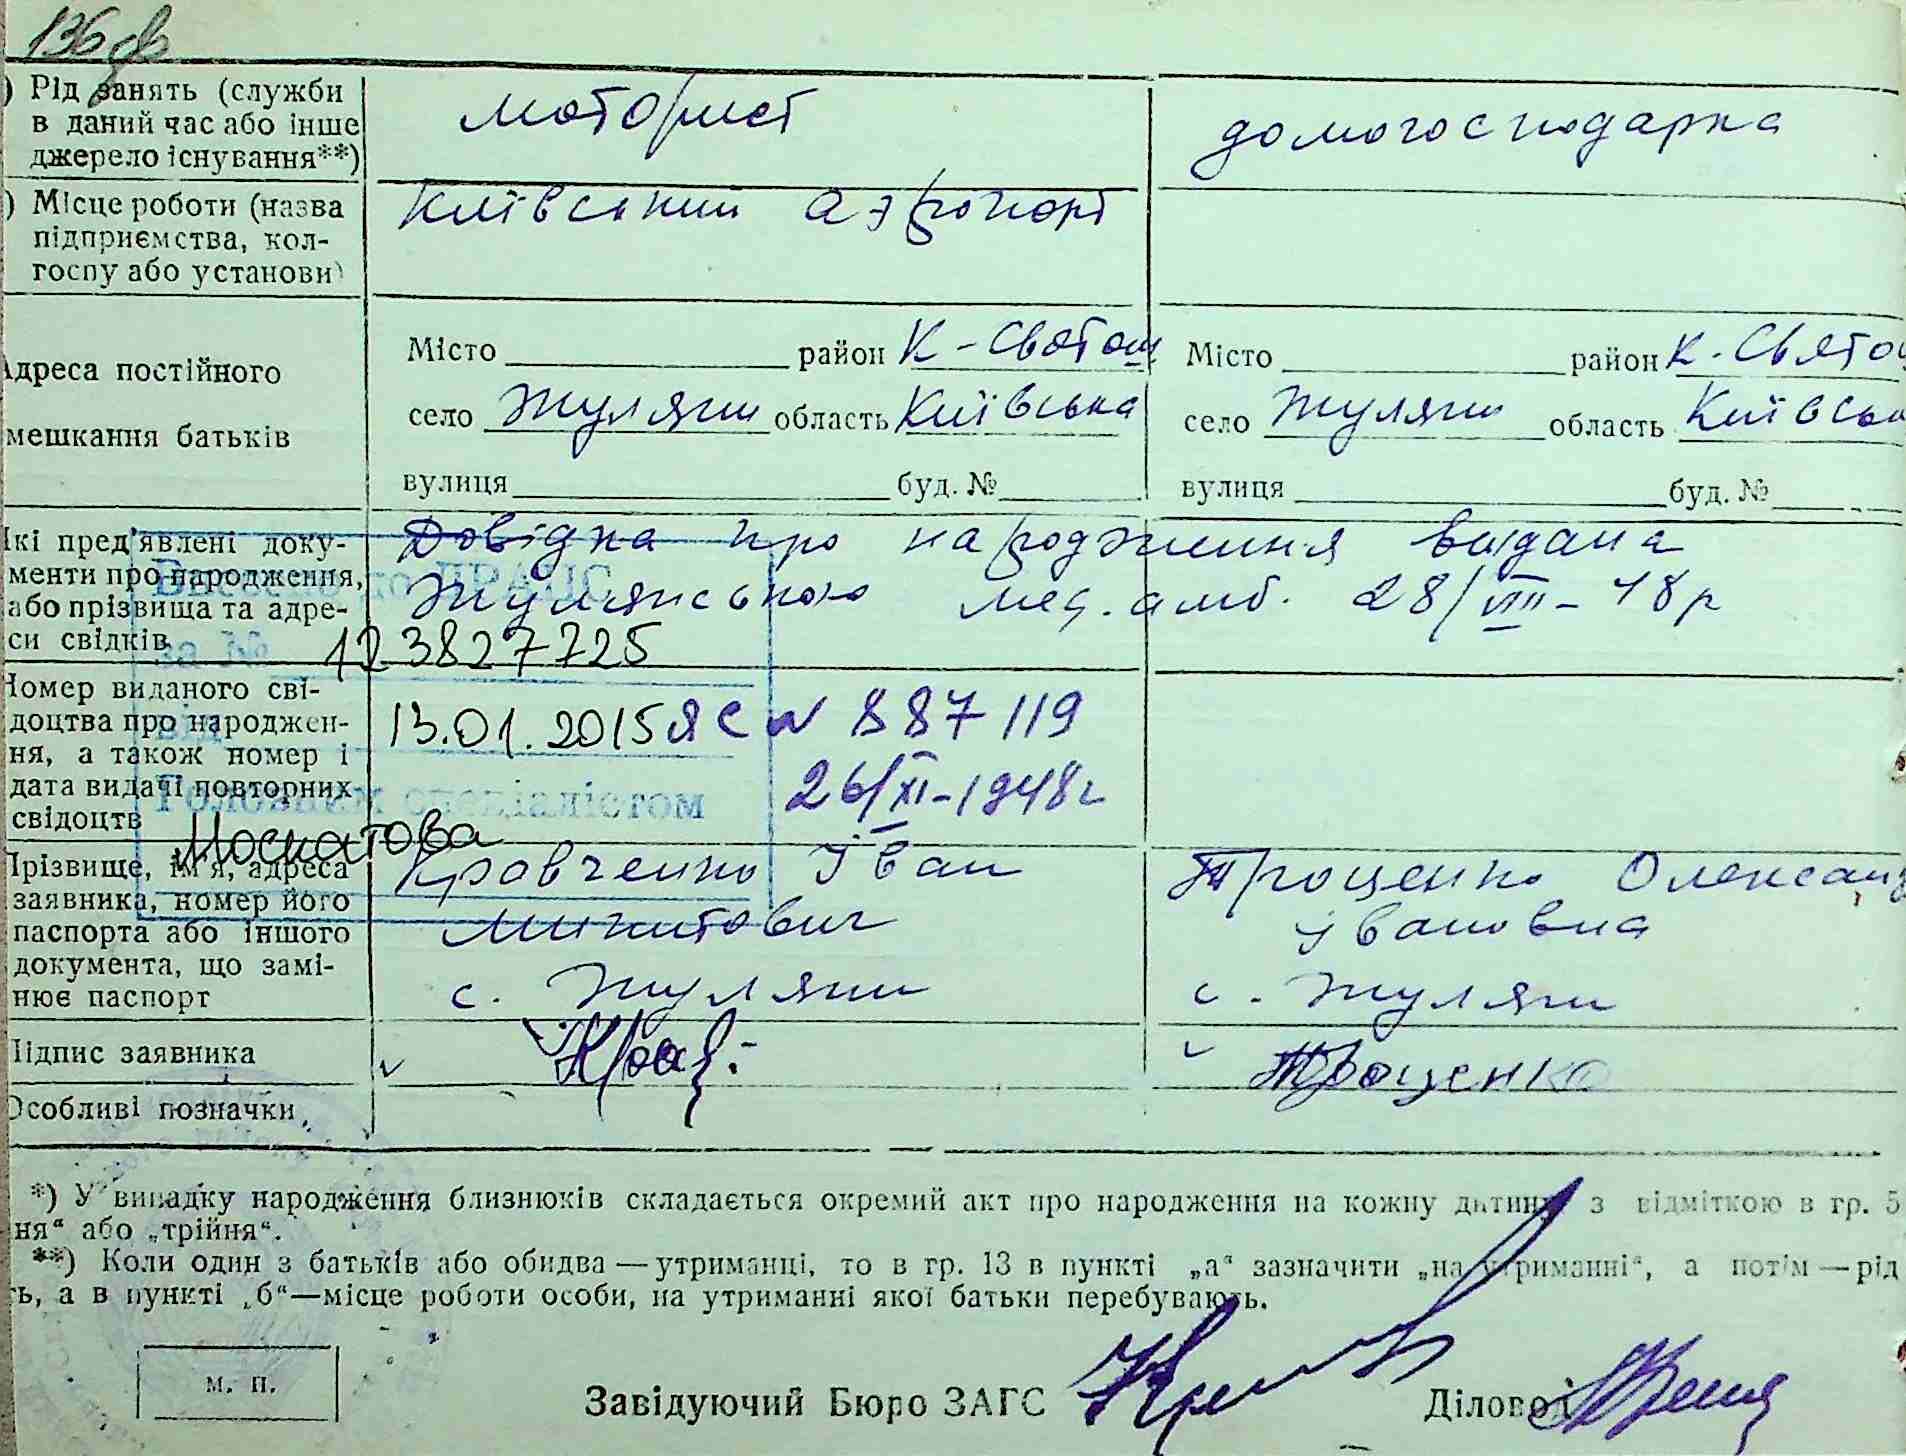 136
) Рід занять (служби в даний час або інше джерело існування**)
моторист
домогосподарка
) Місце роботи (назва підприємства, колгоспу або установи)
Київський аэропорт
Адреса постійного мешкання батьків
Місто район К-Святош
село Жуляни область Київська
вулиця буд. №
Місто район К. Святош
село Жуляни область Київськ
вулиця буд. №
Які пред'явлені документи про народження, або прізвища та адреси свідків
Довідка про народження видана
Жулянською мед. амб. 28/VIII-48р
Внесено до ДРАЦС
за № 123827725
від 13.01.2015
Головним спеціалістом
Москатова
Номер виданого свідоцтва про народження, а також номер і дата видачі повторних свідоцтв
ЯС № 887119
26/XI-1948г
Прізвище, ім'я, адреса заявника, номер його паспорта або іншого документа, що замінює паспорт
Кравченко Іван
Микитович
с. Жуляни
Троценко Олександ
Івановна
с. Жуляни
Підпис заявника
Троценко
Особливі позначки
*) У випадку народження близнюків складається окремий акт про народження на кожну дитину з відміткою в гр. 5
ня“ або „трійня“.
**) Коли один з батьків або обидва—утриманці, то в гр. 13 в пункті „а“ зазначити „на утриманні“, а потім—рід
ь, а в пункті „б“—місце роботи особи, на утриманні якої батьки перебувають.
м. п.
Завідуючий Бюро ЗАГС
Діловод